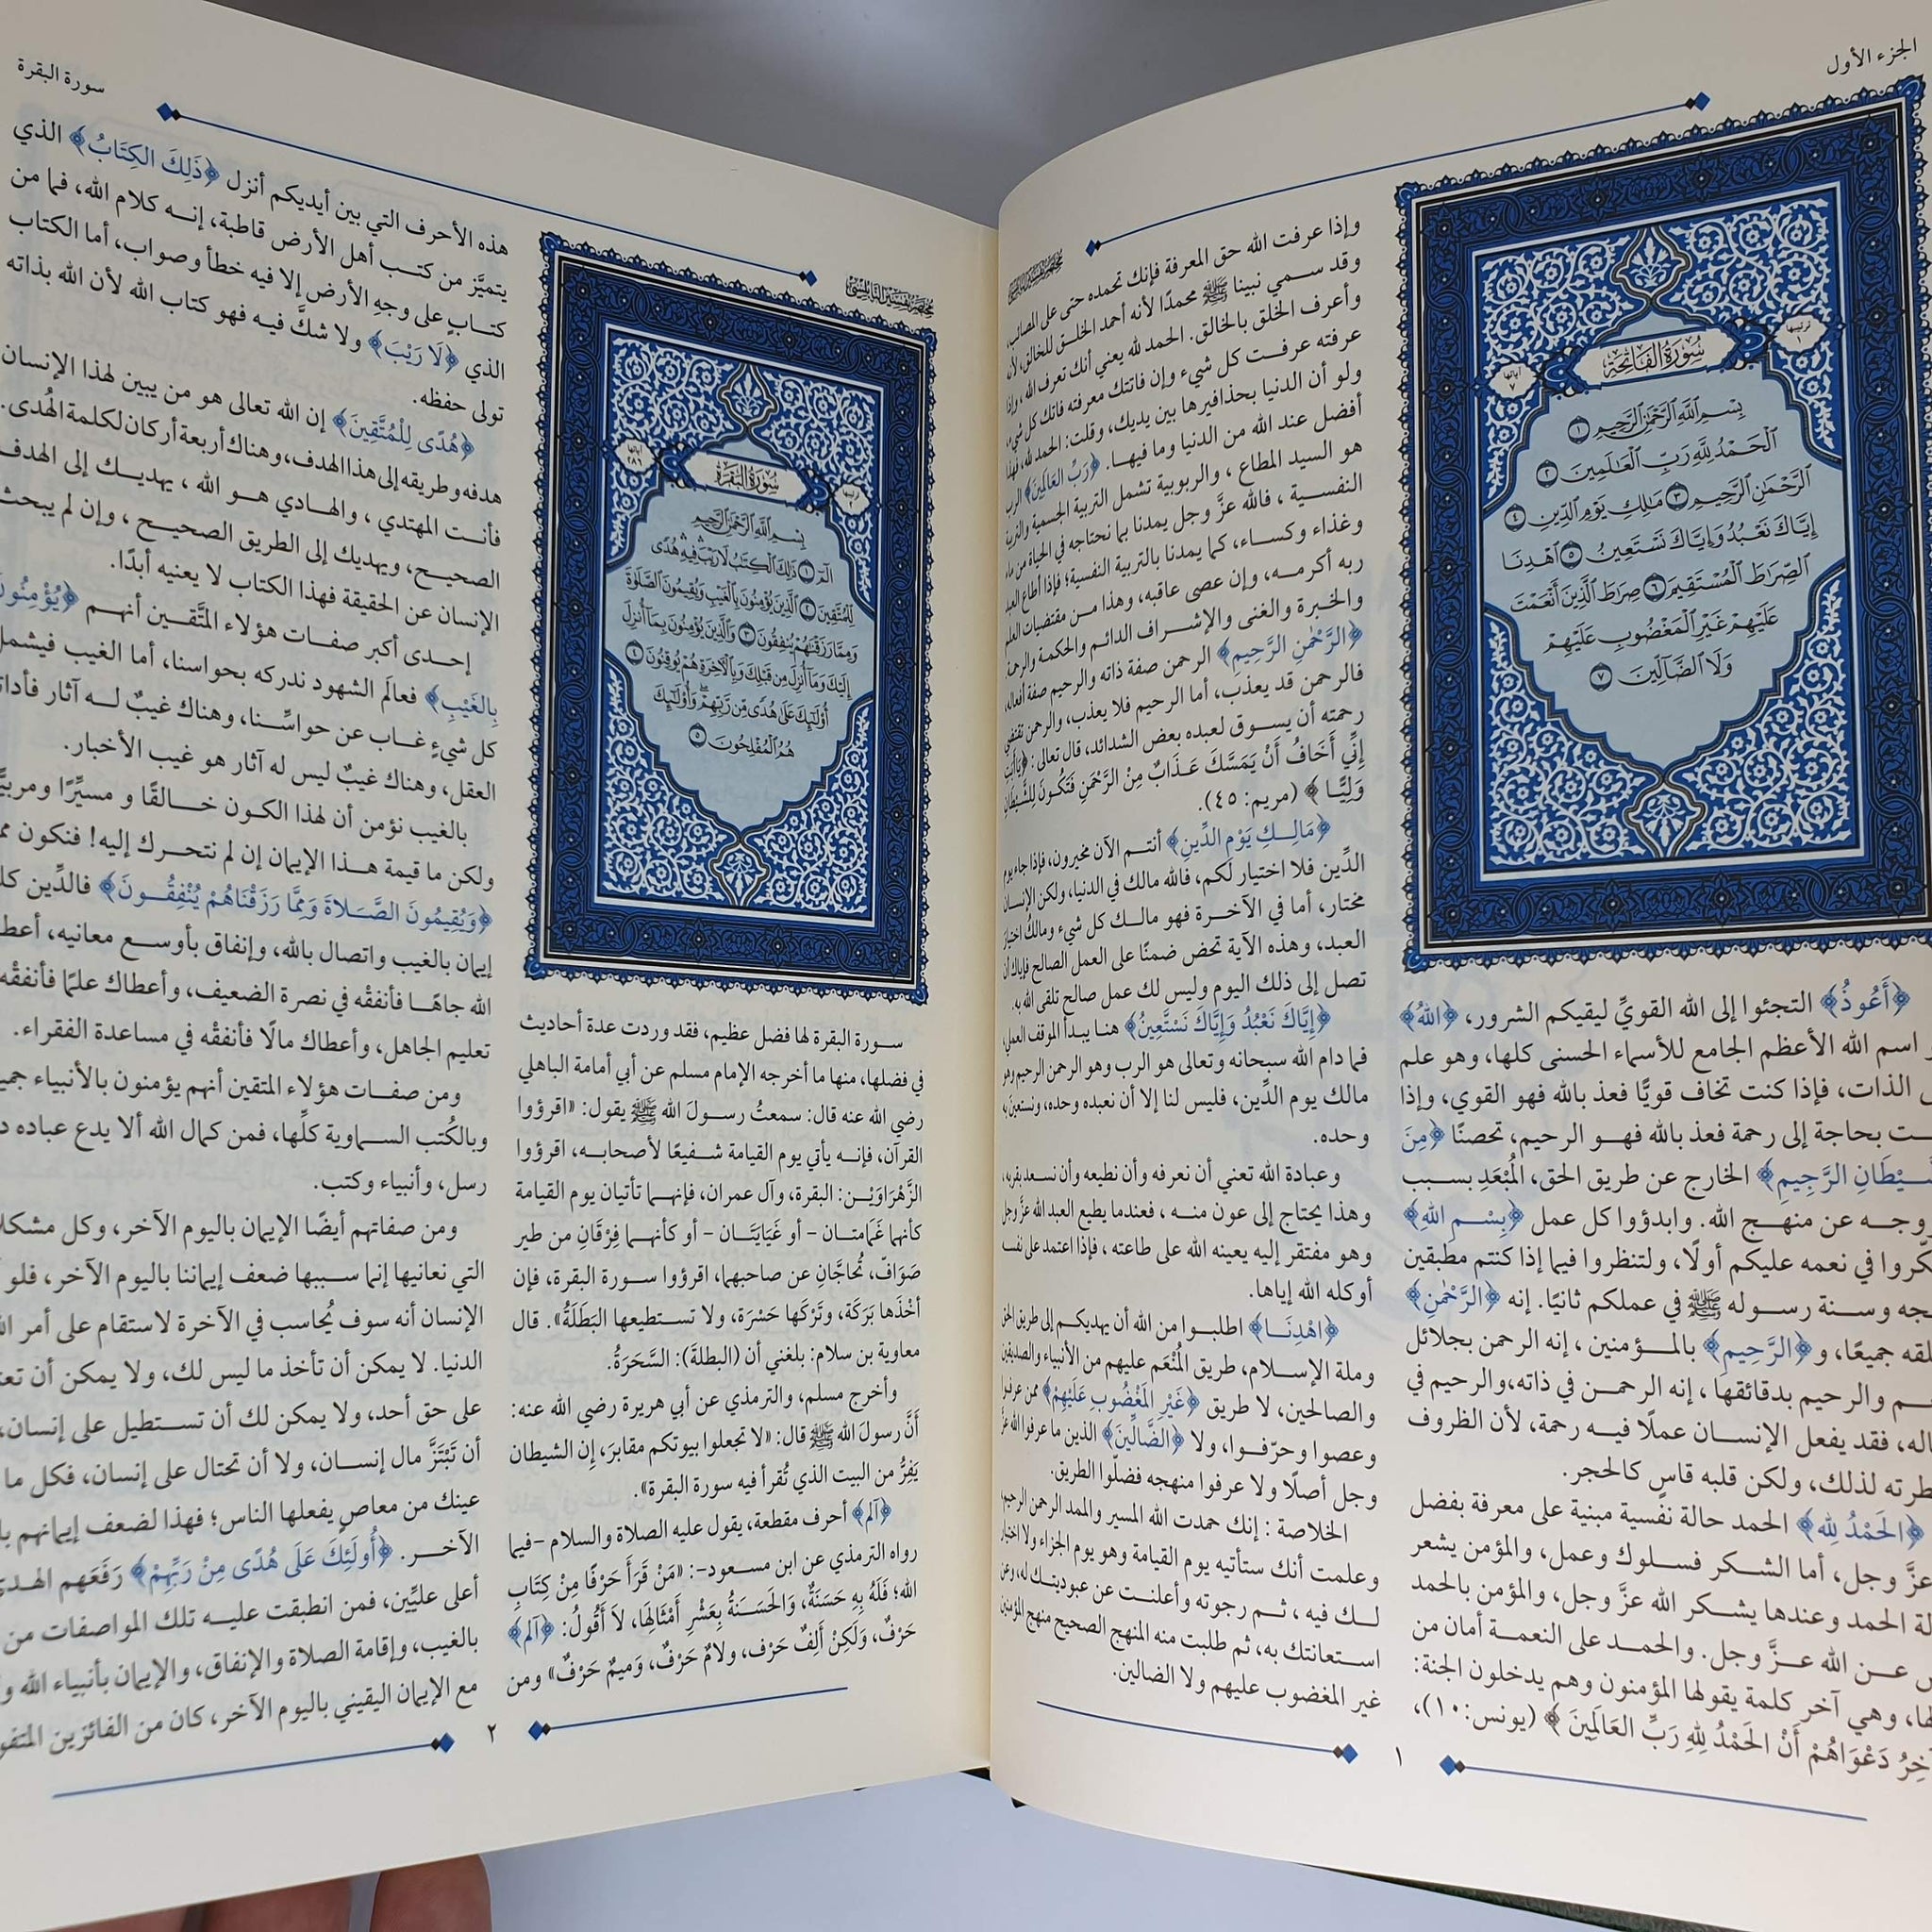 الجزء الأول
سورة الفاتحة
ترتيبها ١
آياتها ٧
بِسْمِ ٱللَّهِ ٱلرَّحْمَٰنِ ٱلرَّحِيمِ ١
ٱلْحَمْدُ لِلَّهِ رَبِّ ٱلْعَٰلَمِينَ ٢
ٱلرَّحْمَٰنِ ٱلرَّحِيمِ ٣ مَٰلِكِ يَوْمِ ٱلدِّينِ ٤
إِيَّاكَ نَعْبُدُ وَإِيَّاكَ نَسْتَعِينُ ٥ ٱهْدِنَا
ٱلصِّرَٰطَ ٱلْمُسْتَقِيمَ ٦ صِرَٰطَ ٱلَّذِينَ أَنْعَمْتَ
عَلَيْهِمْ غَيْرِ ٱلْمَغْضُوبِ عَلَيْهِمْ
وَلَا ٱلضَّآلِّينَ ٧
﴿أَعُوذُ﴾ التجئوا إلى الله القويِّ ليقيكم الشرور، ﴿اللهُ﴾
اسم الله الأعظم الجامع للأسماء الحسنى كلها، وهو علم
الذات، فإذا كنت تخاف قويًّا فعذ بالله فهو القوي، وإذا
بحاجة إلى رحمة فعذ بالله فهو الرحيم، تحصنًا ﴿مِنَ
الرَّجِيمِ﴾ الخارج عن طريق الحق، المُبْعَدِ بسبب
عن منهج الله. وابدؤوا كل عمل ﴿بِسْمِ اللهِ﴾
في نعمه عليكم أولًا، ولتنظروا فيما إذا كنتم مطبقين
وسنة رسوله ﷺ في عملكم ثانيًا. إنه ﴿الرَّحْمٰنِ﴾
جميعًا، و﴿الرَّحِيمِ﴾ بالمؤمنين، إنه الرحمن بجلائل
والرحيم بدقائقها، إنه الرحمن في ذاته، والرحيم في
فقد يفعل الإنسان عملًا فيه رحمة، لأن الظروف
لذلك، ولكن قلبه قاسٍ كالحجر.
﴿الحَمْدُ لِلهِ﴾ الحمد حالة نفسية مبنية على معرفة بفضل
عزَّ وجل، أما الشكر فسلوك وعمل، والمؤمن يشعر
الحمد وعندها يشكر الله عزَّ وجل، والمؤمن بالحمد
عن الله عزَّ وجل. والحمد على النعمة أمان من
وهي آخر كلمة يقولها المؤمنون وهم يدخلون الجنة:
دَعْوَاهُمْ أَنْ الحَمْدُ لِلهِ رَبِّ العَالَمِينَ﴾ (يونس: ١٠)،
وإذا عرفت الله حق المعرفة فإنك تحمده حتى على المصائب،
وقد سمي نبينا ﷺ محمدًا لأنه أحمد الخلق للخالق، لأنه
وأعرف الخلق بالخالق. الحمد لله يعني أنك تعرف الله، وإذا
عرفته عرفت كل شيء وإن فاتتك معرفته فاتك كل شيء،
ولو أن الدنيا بحذافيرها بين يديك، وقلت: الحمد لله، فهذا
أفضل عند الله من الدنيا وما فيها. ﴿رَبِّ العَالَمِينَ﴾ الرب
هو السيد المطاع، والربوبية تشمل التربية الجسمية والتربية
النفسية، فالله عزَّ وجل يمدنا بما نحتاجه في الحياة من ماء
وغذاء وكساء، كما يمدنا بالتربية النفسية؛ فإذا أطاع العبد
ربه أكرمه، وإن عصى عاقبه، وهذا من مقتضيات العلم
والخبرة والغنى والإشراف الدائم والحكمة والرحمة.
﴿الرَّحْمٰنِ الرَّحِيمِ﴾ الرحمن صفة ذاته والرحيم صفة أفعاله،
فالرحمن قد يعذب، أما الرحيم فلا يعذب، والرحمن تقتضي
رحمته أن يسوق لعبده بعض الشدائد، قال تعالى: ﴿يَا أَبَتِ
إِنِّي أَخَافُ أَنْ يَمَسَّكَ عَذَابٌ مِنْ الرَّحْمَنِ فَتَكُونَ لِلشَّيْطَانِ
وَلِيًّا﴾ (مريم: ٤٥).
﴿مَالِكِ يَوْمِ الدِّينِ﴾ أنتم الآن مخيرون، فإذا جاء يوم
الدِّين فلا اختيار لكم، فالله مالك في الدنيا، ولكن الإنسان
مختار، أما في الآخرة فهو مالك كل شيء ومالكُ اختيار
العبد، وهذه الآية تحض ضمنًا على العمل الصالح فإياك أن
تصل إلى ذلك اليوم وليس لك عمل صالح تلقى الله به.
﴿إِيَّاكَ نَعْبُدُ وَإِيَّاكَ نَسْتَعِينُ﴾ هنا يبدأ الموقف العملي،
فما دام الله سبحانه وتعالى هو الرب وهو الرحمن الرحيم وهو
مالك يوم الدِّين، فليس لنا إلا أن نعبده وحده، ونستعين به
وحده.
وعبادة الله تعني أن نعرفه وأن نطيعه وأن نسعد بقربه،
وهذا يحتاج إلى عون منه، فعندما يطيع العبد الله عزَّ وجل
وهو مفتقر إليه يعينه الله على طاعته، فإذا اعتمد على نفسه
أوكله الله إياها.
﴿اهْدِنَا﴾ اطلبوا من الله أن يهديكم إلى طريق الحق
وملة الإسلام، طريق المُنْعَم عليهم من الأنبياء والصديقين
والصالحين، لا طريق ﴿غَيْرِ المَغْضُوبِ عَلَيْهِمْ﴾ ممن عرفوا
وعصوا وحرّفوا، ولا ﴿الضَّالِّينَ﴾ الذين ما عرفوا الله عزَّ
وجل أصلًا ولا عرفوا منهجه فضلّوا الطريق.
الخلاصة: إنك حمدت الله المسير والممد الرحمن الرحيم،
وعلمت أنك ستأتيه يوم القيامة وهو يوم الجزاء ولا اختيار
لك فيه، ثم رجوته وأعلنت عن عبوديتك له، وعن
استعانتك به، ثم طلبت منه المنهج الصحيح منهج المؤمنين
غير المغضوب عليهم ولا الضالين.
١
سورة البقرة
سورة البقرة
ترتيبها ٢
آياتها ٢٨٦
بِسْمِ ٱللَّهِ ٱلرَّحْمَٰنِ ٱلرَّحِيمِ
الٓمٓ ١ ذَٰلِكَ ٱلْكِتَٰبُ لَا رَيْبَ ۛ فِيهِ ۛ هُدًى
لِّلْمُتَّقِينَ ٢ ٱلَّذِينَ يُؤْمِنُونَ بِٱلْغَيْبِ وَيُقِيمُونَ ٱلصَّلَوٰةَ
وَمِمَّا رَزَقْنَٰهُمْ يُنفِقُونَ ٣ وَٱلَّذِينَ يُؤْمِنُونَ بِمَآ أُنزِلَ
إِلَيْكَ وَمَآ أُنزِلَ مِن قَبْلِكَ وَبِٱلْءَاخِرَةِ هُمْ يُوقِنُونَ ٤
أُو۟لَٰٓئِكَ عَلَىٰ هُدًى مِّن رَّبِّهِمْ ۖ وَأُو۟لَٰٓئِكَ
هُمُ ٱلْمُفْلِحُونَ ٥
سورة البقرة لها فضل عظيم، فقد وردت عدة أحاديث
في فضلها، منها ما أخرجه الإمام مسلم عن أبي أمامة الباهلي
رضي الله عنه قال: سمعتُ رسولَ الله ﷺ يقول: «اقرؤوا
القرآن، فإنه يأتي يوم القيامة شفيعًا لأصحابه، اقرؤوا
الزَّهْرَاوَيْن: البقرة، وآل عمران، فإنهما تأتيان يوم القيامة
كأنهما غَمَامتان – أو غَيَايَتَان – أو كأنهما فِرْقَانِ من طير
صَوَافَّ، تُحاجَّانِ عن صاحبهما، اقرؤوا سورة البقرة، فإن
أخْذَها بَرَكَة، وتَرْكَها حَسْرَة، ولا تستطيعها البَطَلَةُ». قال
معاوية بن سلام: بلغني أن (البطلةَ): السَّحَرَةُ.
وأخرج مسلم، والترمذي عن أبي هريرة رضي الله عنه:
أنَّ رسولَ الله ﷺ قال: «لا تجعلوا بيوتكم مقابرَ، إن الشيطان
يَفِرُّ من البيت الذي تُقرأ فيه سورة البقرة».
﴿آلم﴾ أحرف مقطعة، يقول عليه الصلاة والسلام –فيما
رواه الترمذي عن ابن مسعود–: «مَنْ قَرَأَ حَرْفًا مِنْ كِتَابِ
الله؛ فَلَهُ بِهِ حَسَنَةٌ، وَالحَسَنَةُ بِعَشْرِ أَمْثَالِهَا، لاَ أَقُولُ: ﴿آلم﴾
حَرْفٌ، وَلَكِنْ أَلِفٌ حَرْف، ولامٌ حَرْفٌ، وَميمٌ حَرْفٌ» ومن
هذه الأحرف التي بين أيديكم أنزل ﴿ذَلِكَ الكِتَابُ﴾ الذي
يتميَّز من كتب أهل الأرض قاطبة، إنه كلام الله، فما من
كتابٍ على وجهِ الأرض إلا فيه خطأ وصواب، أما الكتاب
الذي ﴿لَا رَيْبَ﴾ ولا شكَّ فيه فهو كتاب الله لأن الله بذاته
تولى حفظه.
﴿هُدًى لِلْمُتَّقِينَ﴾ إن الله تعالى هو من يبين لهذا الإنسان
هدفه وطريقه إلى هذا الهدف، وهناك أربعة أركان لكلمة الهُدى.
فأنت المهتدي، والهادي هو الله، يهديك إلى الهدف
الصحيح، ويهديك إلى الطريق الصحيح، وإن لم يبحث
الإنسان عن الحقيقة فهذا الكتاب لا يعنيه أبدًا.
إحدى أكبر صفات هؤلاء المتَّقين أنهم ﴿يُؤْمِنُونَ
بِالغَيْبِ﴾ فعالَم الشهود ندركه بحواسنا، أما الغيب فيشمل
كل شيءٍ غاب عن حواسِّنا، وهناك غيبٌ له آثار فأداته
العقل، وهناك غيبٌ ليس له آثار هو غيب الأخبار.
بالغيب نؤمن أن لهذا الكون خالقًا و مسيِّرًا ومربيًّا
ولكن ما قيمة هذا الإيمان إن لم نتحرك إليه! فنكون
﴿وَيُقِيمُونَ الصَّلاةَ وَمِمَّا رَزَقْنَاهُمْ يُنْفِقُونَ﴾ فالدِّين
إيمان بالغيب واتصال بالله، وإنفاق بأوسع معانيه،
الله جاهًا فأنفقْه في نصرة الضعيف، وأعطاك علمًا فأنفقْه
تعليم الجاهل، وأعطاك مالًا فأنفقْه في مساعدة الفقراء.
ومن صفات هؤلاء المتقين أنهم يؤمنون بالأنبياء
وبالكُتب السماوية كلِّها، فمن كمال الله ألا يدع عباده
رسل، وأنبياء وكتب.
ومن صفاتهم أيضًا الإيمان باليوم الآخر، وكل
التي نعانيها إنما سببها ضعف إيماننا باليوم الآخر، فلو
الإنسان أنه سوف يُحاسب في الآخرة لاستقام على أمر
الدنيا. لا يمكن أن تأخذ ما ليس لك، ولا يمكن أن
على حق أحد، ولا يمكن لك أن تستطيل على إنسان،
أن تَبْتَزَّ مال إنسان، ولا أن تحتال على إنسان، فكل ما
عينك من معاصٍ يفعلها الناس؛ فهذا لضعف إيمانهم
الآخر. ﴿أُولَئِكَ عَلَى هُدًى مِنْ رَبِّهِمْ﴾ رَفَعَهم
أعلى علِّيِّين، فمن انطبقت عليه تلك المواصفات من
بالغيب، وإقامة الصلاة والإنفاق، والإيمان بأنبياء الله
مع الإيمان اليقيني باليوم الآخر، كان من الفائزين
٢